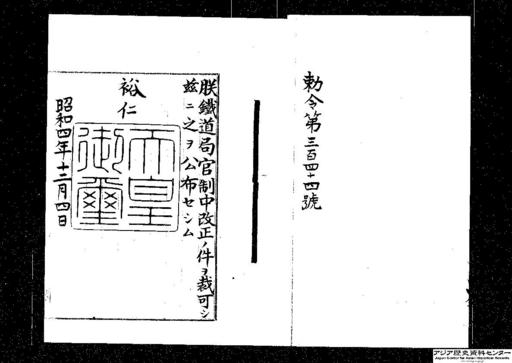 勅令第三百四十四號
朕鐵道局官制中改正ノ件ヲ裁可シ
玆ニ之ヲ公布セシム
裕仁
天皇
御璽
昭和四年十二月四日
アジア歴史資料センター
Japan Center for Asian Historical Records